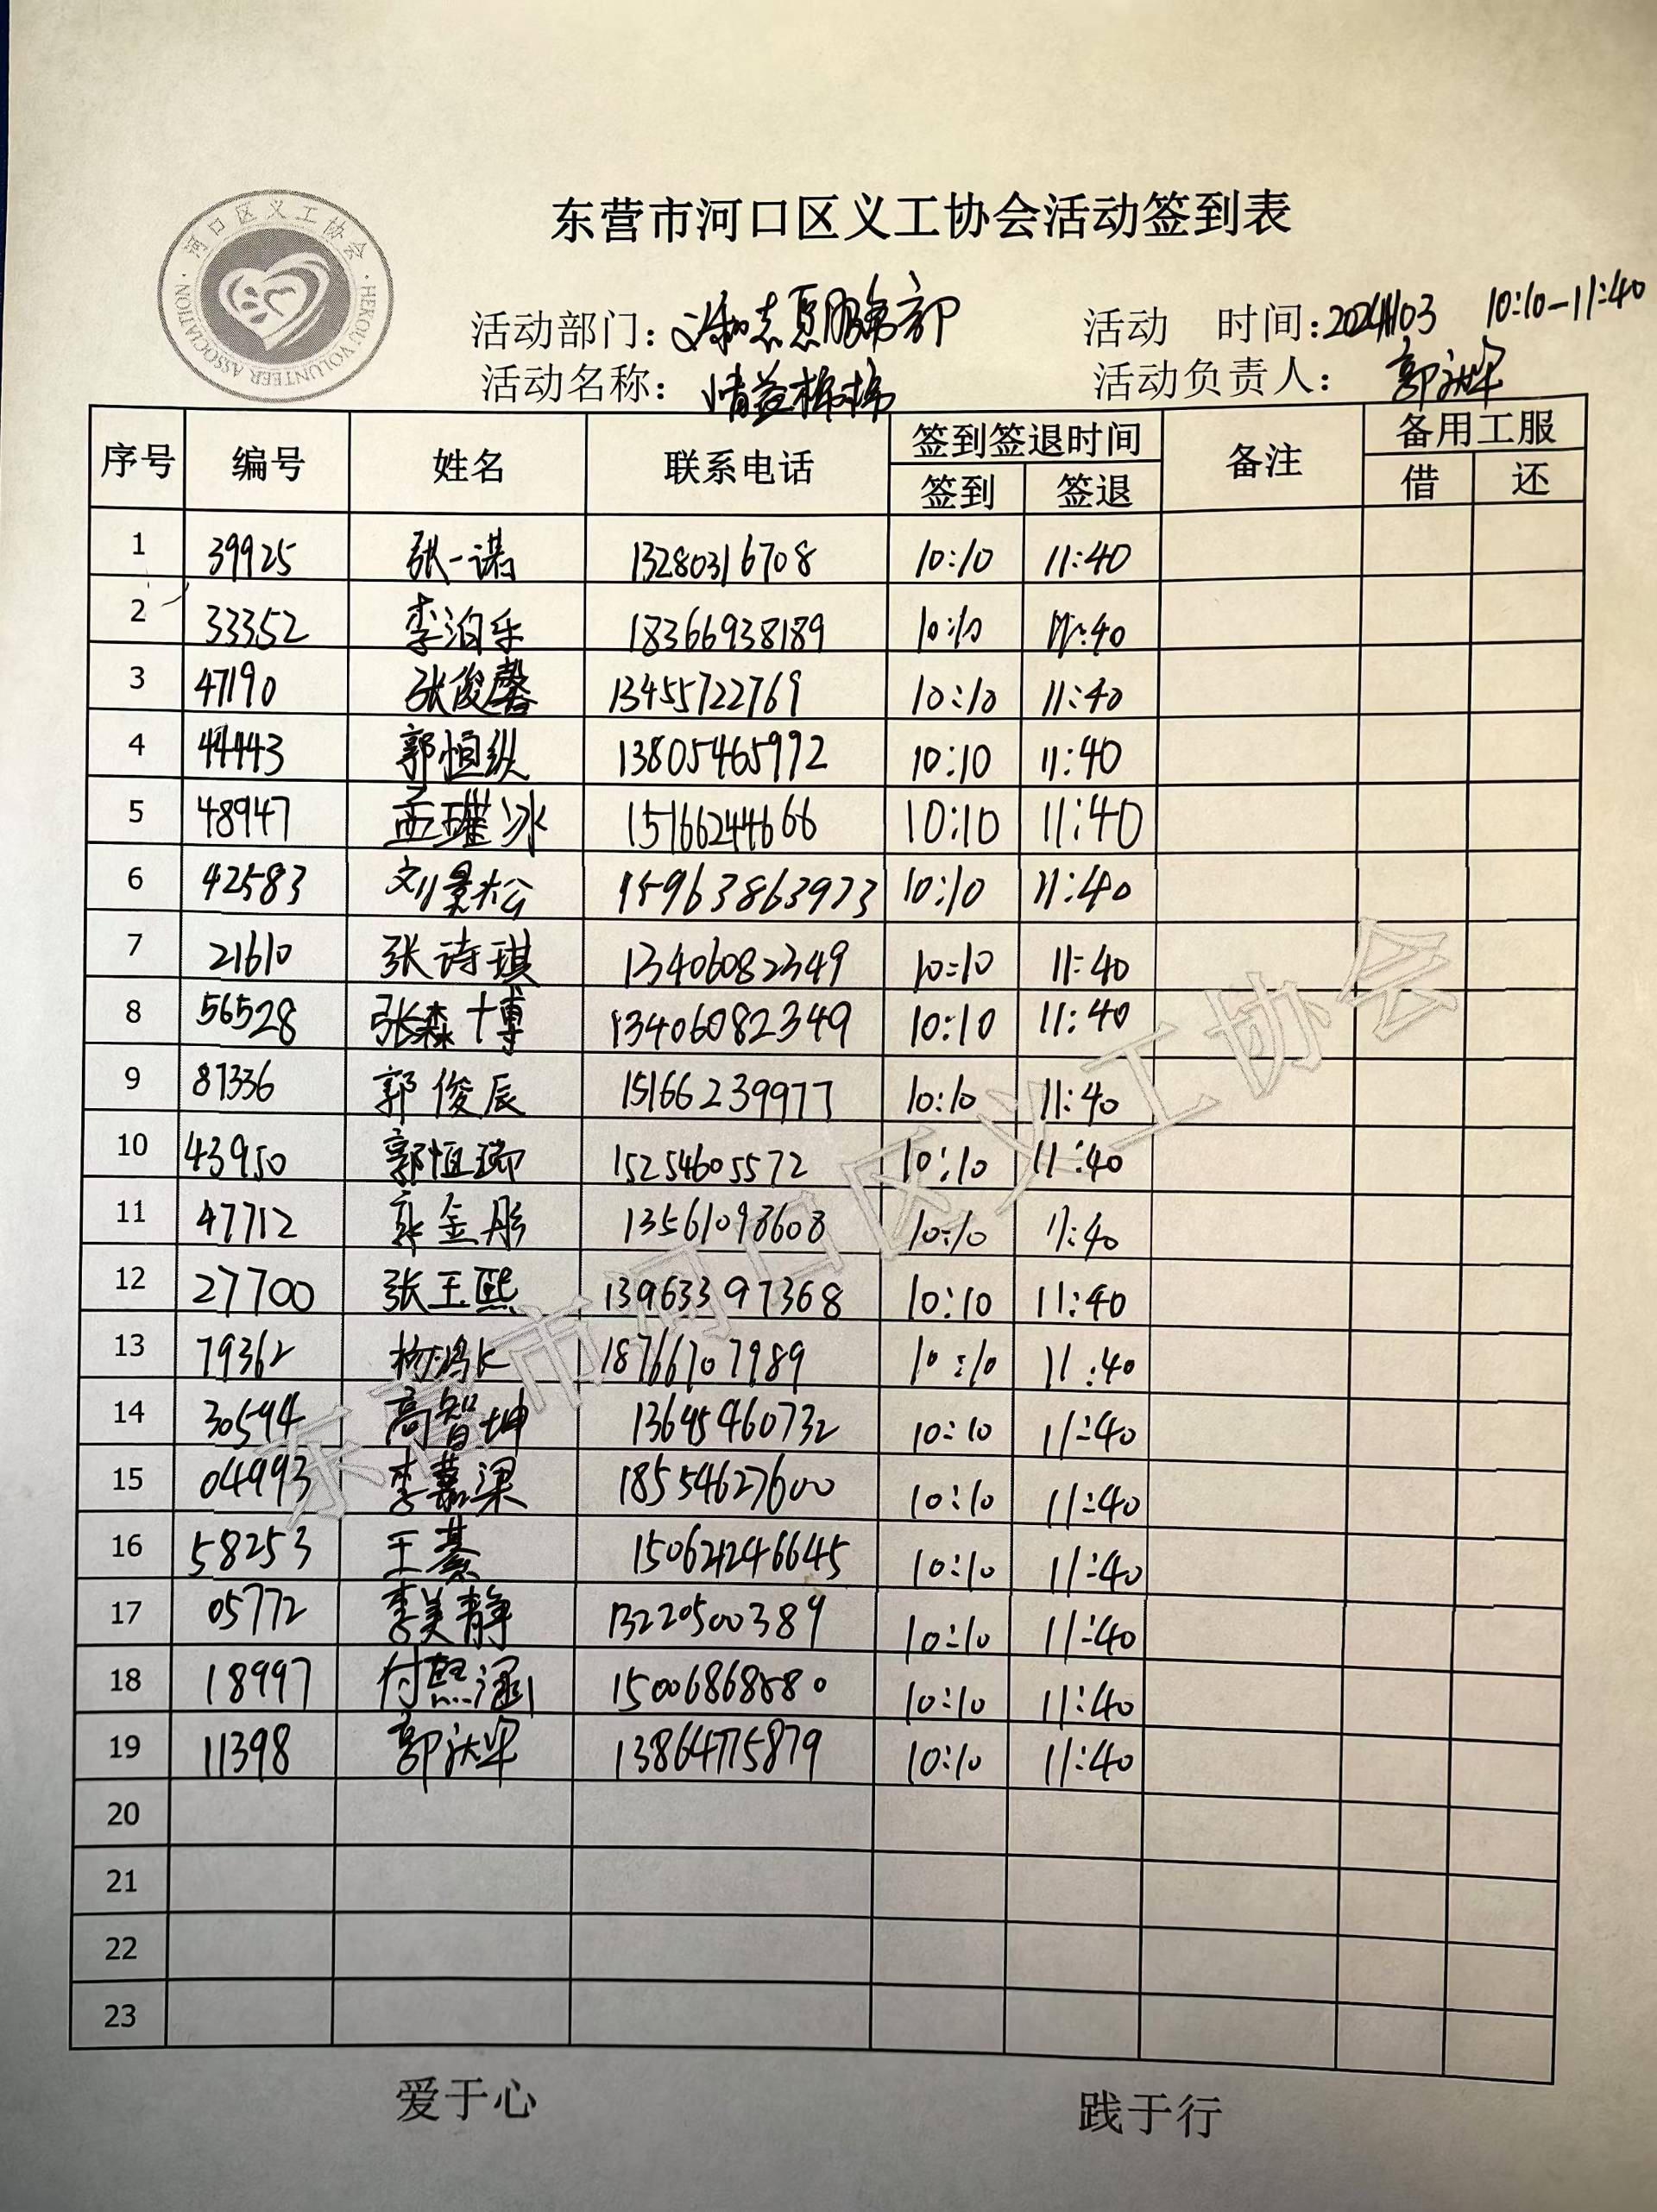 东营市河口区义工协会活动签到表
河口区义工协会
HEKOU VOLUNTEER ASSOCIATION
活动部门: 义和志愿服务部 活动 时间: 20241103 10:10-11:40
活动名称: 情益 活动负责人: 郭
序号 编号 姓名 联系电话 签到签退时间 备注 备用工服
签到 签退 借 还
1 39925 张一诺 13280316708 10:10 11:40
2 33352 李泊乐 18366938189 10:10 11:40
3 47190 张俊馨 13455722769 10:10 11:40
4 44443 郭恒纵 13805465992 10:10 11:40
5 48947 孟瓘冰 15166244666 10:10 11:40
6 42583 刘景松 15963863973 10:10 11:40
7 21610 张诗琪 13406082349 10:10 11:40
8 56528 张森博 13406082349 10:10 11:40
9 81336 郭俊辰 15166239977 10:10 11:40
10 43950 郭恒瑞 15254605572 10:10 11:40
11 47712 郭金彤 13561098608 10:10 11:40
12 27700 张王熙 13963397368 10:10 11:40
13 79362 杨鸿 18766707989 10:10 11:40
14 30594 高智坤 13645460732 10:10 11:40
15 04993 李嘉梁 18554627600 10:10 11:40
16 58253 王綦 10:10 11:40
17 05772 李美静 13220500389 10:10 11:40
18 18997 付熙涵 15006868880 10:10 11:40
19 11398 郭 13864775879 10:10 11:40
20
21
22
23
东营市河口区义工协会
爱于心 践于行